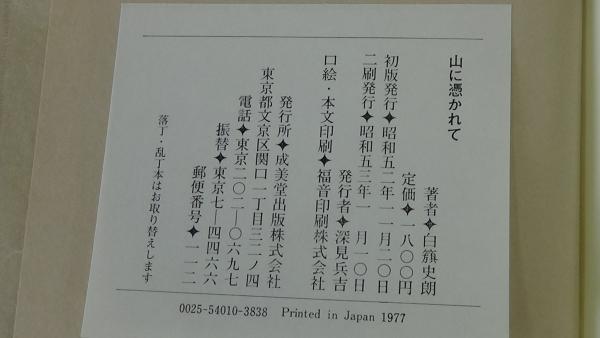 山に憑かれて
著者✦白籏史朗
定価✦一八〇〇円
初版発行✦昭和五二年一一月二〇日
二刷発行✦昭和五三年一月一〇日
発行者✦深見兵吉
口絵・本文印刷✦福音印刷株式会社
発行所✦成美堂出版株式会社
東京都文京区関口一丁目三二ノ四
電話✦東京二〇二―〇六九七
振替✦東京七―四四六六
郵便番号✦一一二
落丁・乱丁本はお取り替えします
0025-54010-3838 Printed in Japan 1977